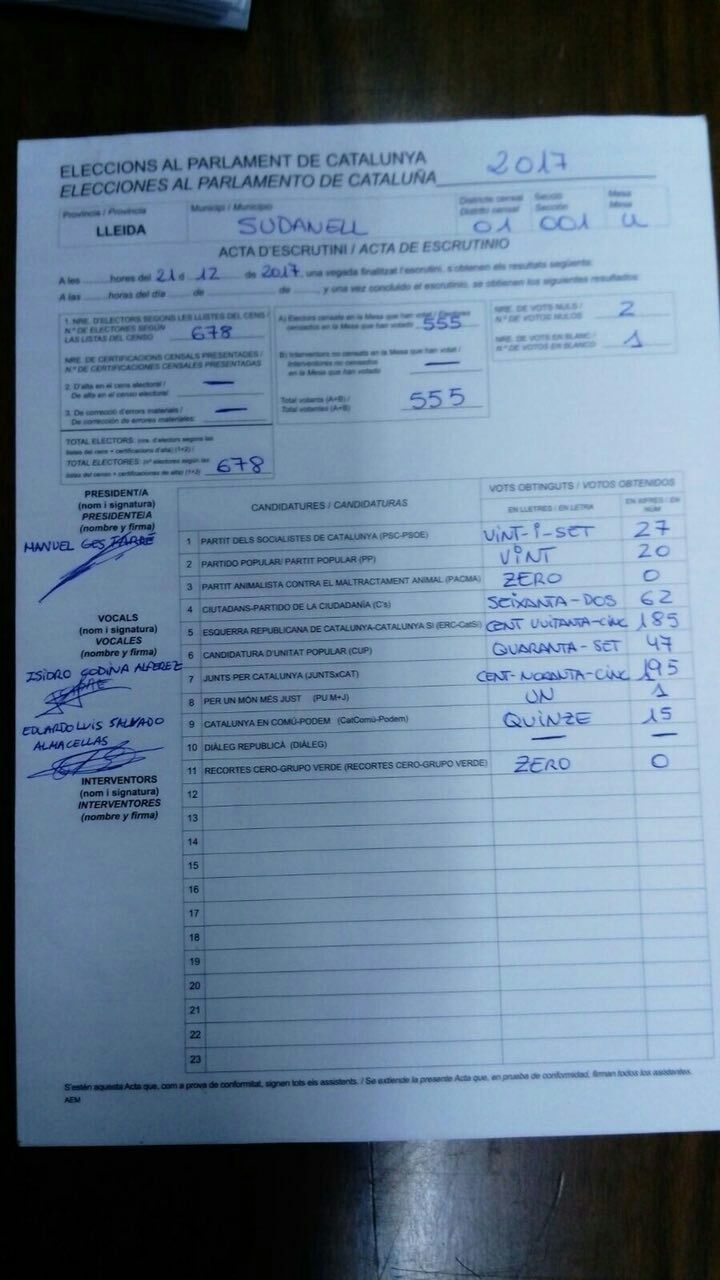 ELECCIONS AL PARLAMENT DE CATALUNYA
ELECCIONES AL PARLAMENTO DE CATALUÑA 2017
Província / Provincia Municipi / Municipio Districte censal Secció Mesa
Distrito censal Sección Mesa
LLEIDA SUDANELL 01 001 U
ACTA D'ESCRUTINI / ACTA DE ESCRUTINIO
A les hores del 21 d 12 de 2017, una vegada finalitzat l'escrutini, s'obtenen els resultats següents:
A las horas del día de de y una vez concluido el escrutinio, se obtienen los siguientes resultados:
1. NRE. D'ELECTORS SEGONS LES LLISTES DEL CENS /
N.º DE ELECTORES SEGÚN
LAS LISTAS DEL CENSO 678
NRE. DE CERTIFICACIONS CENSALS PRESENTADES /
N.º DE CERTIFICACIONES CENSALES PRESENTADAS
2. D'alta en el cens electoral / —
De alta en el censo electoral:
3. De correcció d'errors materials / —
De corrección de errores materiales:
TOTAL ELECTORS: (nre. d'electors segons les
llistes del cens + certificacions d'alta) (1+2) /
TOTAL ELECTORES: (nº electores según las
listas del censo + certificaciones de alta) (1+2) 678
A) Electors censats en la Mesa que han votat / Electores
censados en la Mesa que han votado 555
B) Interventors no censats en la Mesa que han votat /
Interventores no censados
en la Mesa que han votado —
Total votants (A+B) /
Total votantes (A+B) 555
NRE. DE VOTS NULS /
N.º DE VOTOS NULOS 2
NRE. DE VOTS EN BLANC /
N.º DE VOTOS EN BLANCO 1
PRESIDENT/A
(nom i signatura)
PRESIDENTE/A
(nombre y firma)
MANUEL GES
VOCALS
(nom i signatura)
VOCALES
(nombre y firma)
ISIDRO GODINA ALFEREZ
EDUARDO LUIS SALVADO
ALMACELLAS
INTERVENTORS
(nom i signatura)
INTERVENTORES
(nombre y firma)
CANDIDATURES / CANDIDATURAS VOTS OBTINGUTS / VOTOS OBTENIDOS
EN LLETRES / EN LETRA EN XIFRES / EN NÚM
1 PARTIT DELS SOCIALISTES DE CATALUNYA (PSC-PSOE) VINT-I-SET 27
2 PARTIDO POPULAR/ PARTIT POPULAR (PP) VINT 20
3 PARTIT ANIMALISTA CONTRA EL MALTRACTAMENT ANIMAL (PACMA) ZERO 0
4 CIUTADANS-PARTIDO DE LA CIUDADANÍA (C's) SEIXANTA-DOS 62
5 ESQUERRA REPUBLICANA DE CATALUNYA-CATALUNYA SÍ (ERC-CatSí) CENT VUITANTA-CINC 185
6 CANDIDATURA D'UNITAT POPULAR (CUP) QUARANTA-SET 47
7 JUNTS PER CATALUNYA (JUNTSxCAT) CENT-NORANTA-CINC 195
8 PER UN MÓN MÉS JUST (PU M+J) UN 1
9 CATALUNYA EN COMÚ-PODEM (CatComú-Podem) QUINZE 15
10 DIÀLEG REPUBLICÀ (DIÀLEG) — —
11 RECORTES CERO-GRUPO VERDE (RECORTES CERO-GRUPO VERDE) ZERO 0
12
13
14
15
16
17
18
19
20
21
22
23
S'estén aquesta Acta que, com a prova de conformitat, signen tots els assistents. / Se extiende la presente Acta que, en prueba de conformidad, firman todos los asistentes.
AEM